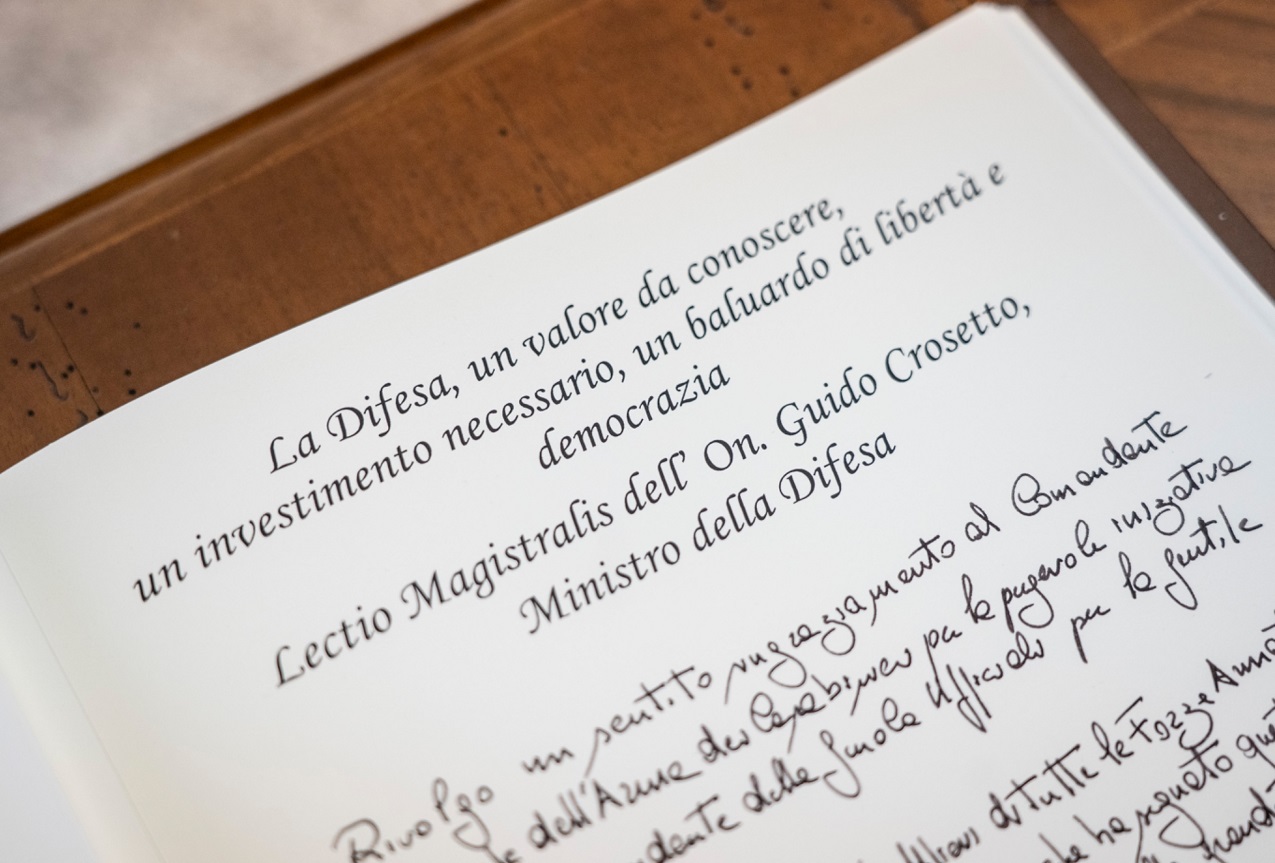 La Difesa, un valore da conoscere,
un investimento necessario, un baluardo di libertà e
democrazia
Lectio Magistralis dell' On. Guido Crosetto,
Ministro della Difesa
Rivolgo un sentito ringraziamento al Comandante
dell'Arma dei Carabinieri per la pregevole iniziativa
della Scuola Ufficiali per la gentile
di tutte le Forze
ha segnato